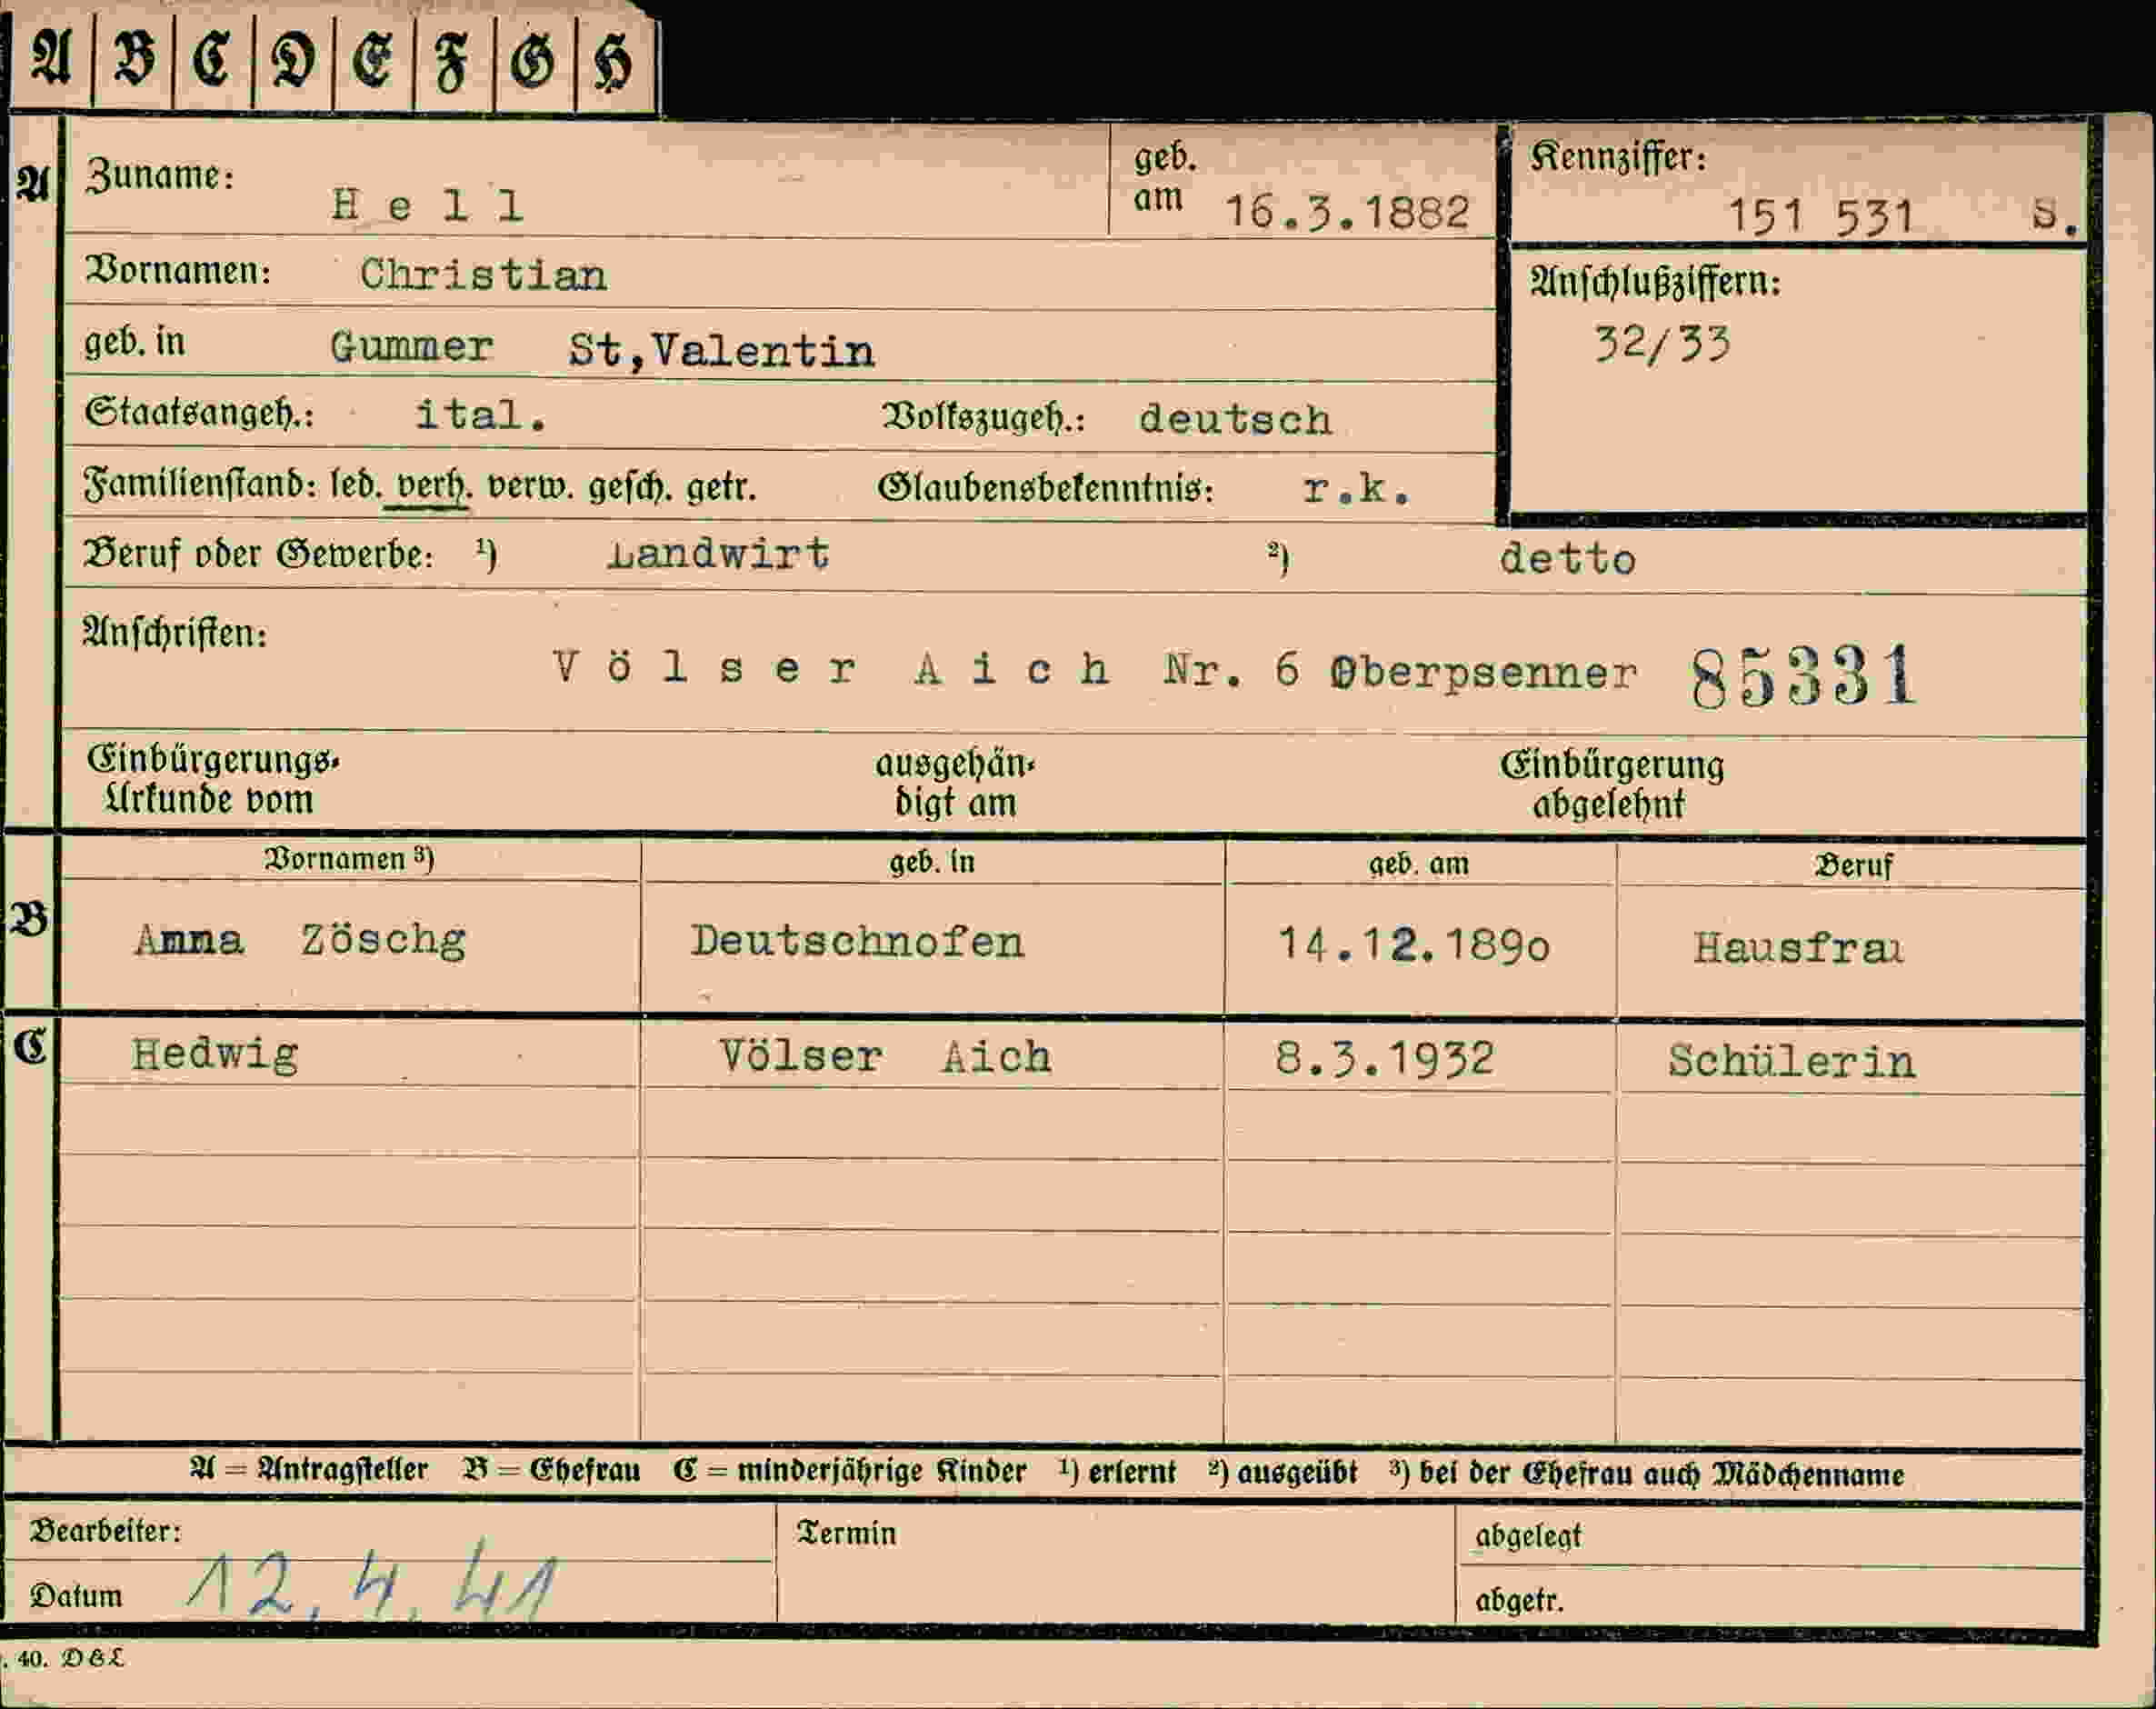 A B C D E F G H
A Zuname: Hell geb. am 16.3.1882 Kennziffer: 151 531 S.
Vornamen: Christian Anschlußziffern:
geb. in Gummer St,Valentin 32/33
Staatsangeh.: ital. Volkszugeh.: deutsch
Familienstand: led. verh. verw. gesch. getr. Glaubensbekenntnis: r.k.
Beruf oder Gewerbe: ¹) Landwirt ²) detto
Anschriften:
Völser Aich Nr. 6 Oberpsenner 85331
Einbürgerungs- ausgehän- Einbürgerung
Urkunde vom digt am abgelehnt
Vornamen ³) geb. in geb. am Beruf
B Anna Zöschg Deutschnofen 14.12.1890 Hausfrau
C Hedwig Völser Aich 8.3.1932 Schülerin
A = Antragsteller B = Ehefrau C = minderjährige Kinder ¹) erlernt ²) ausgeübt ³) bei der Ehefrau auch Mädchenname
Bearbeiter: Termin abgelegt
Datum 12.4.41 abgetr.
. 40. D&L